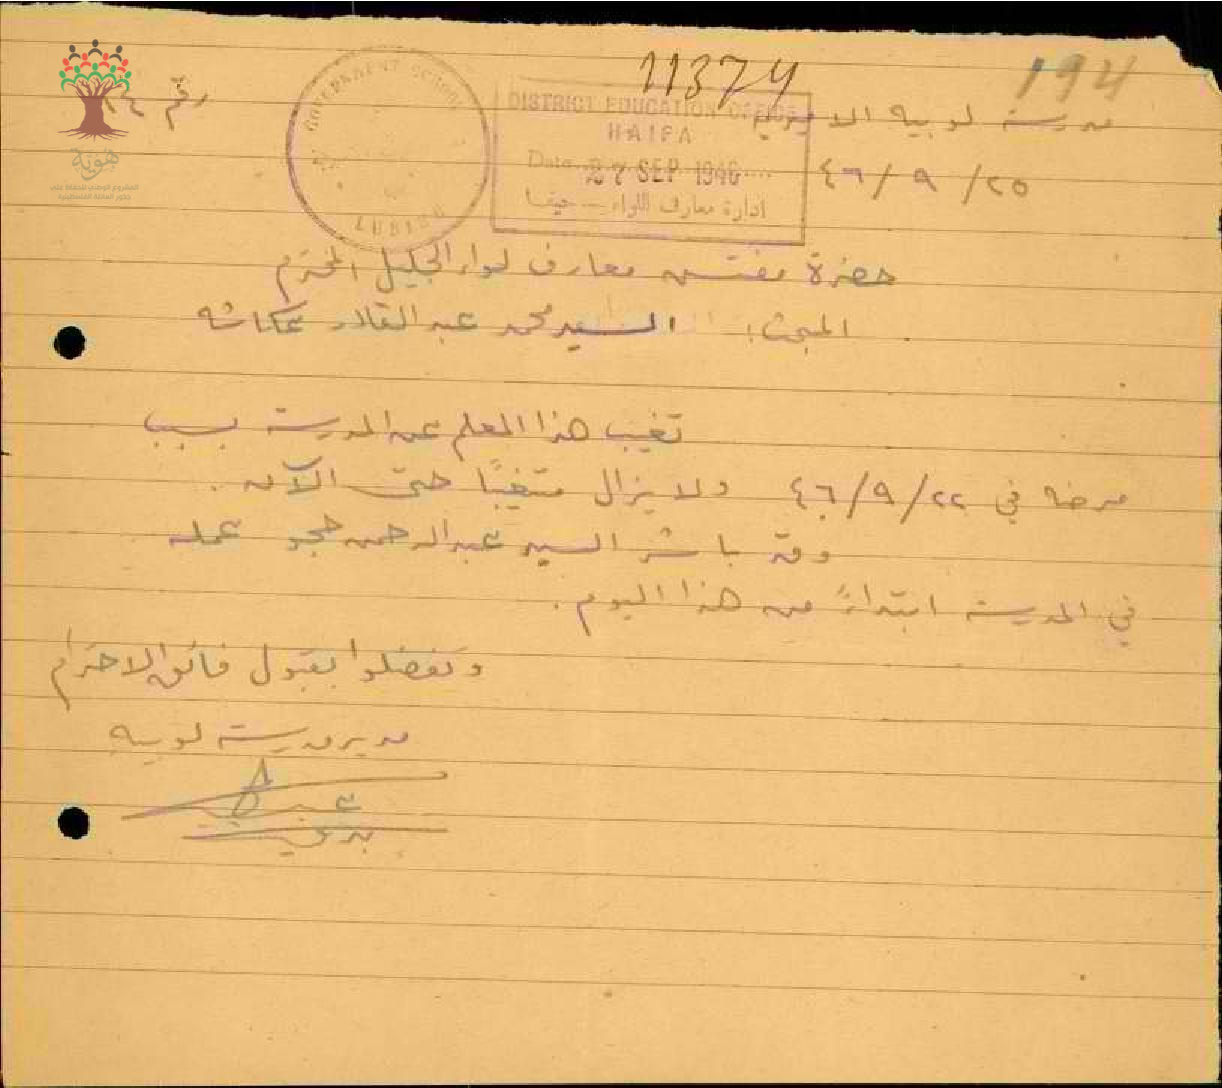 194
11374
مدرسة لوبيه الاميرية
رقم ١٤
٢٥/ ٩ /٤٦
GOVERNMENT SCHOOL
LUBIEH
DISTRICT EDUCATION OFFICE
HAIFA
Date 27 SEP 1946
ادارة معارف اللواء – حيفا
هوية
المشروع الوطني للحفاظ على
جذور العائلة الفلسطينية
حضرة مفتش معارف لواء الجليل المحترم
المبحث: السيد محمد عبد القادر عكاشه
تغيب هذا المعلم عن المدرسة بسبب
مرضه في ٢٢/ ٩/ ٤٦ ولا يزال متغيبًا حتى الآن.
وقد باشر السيد عبد الرحمن حجو عمله
في المدرسة ابتداءً من هذا اليوم.
وتفضلوا بقبول فائق الاحترام
مدير مدرسة لوبيه